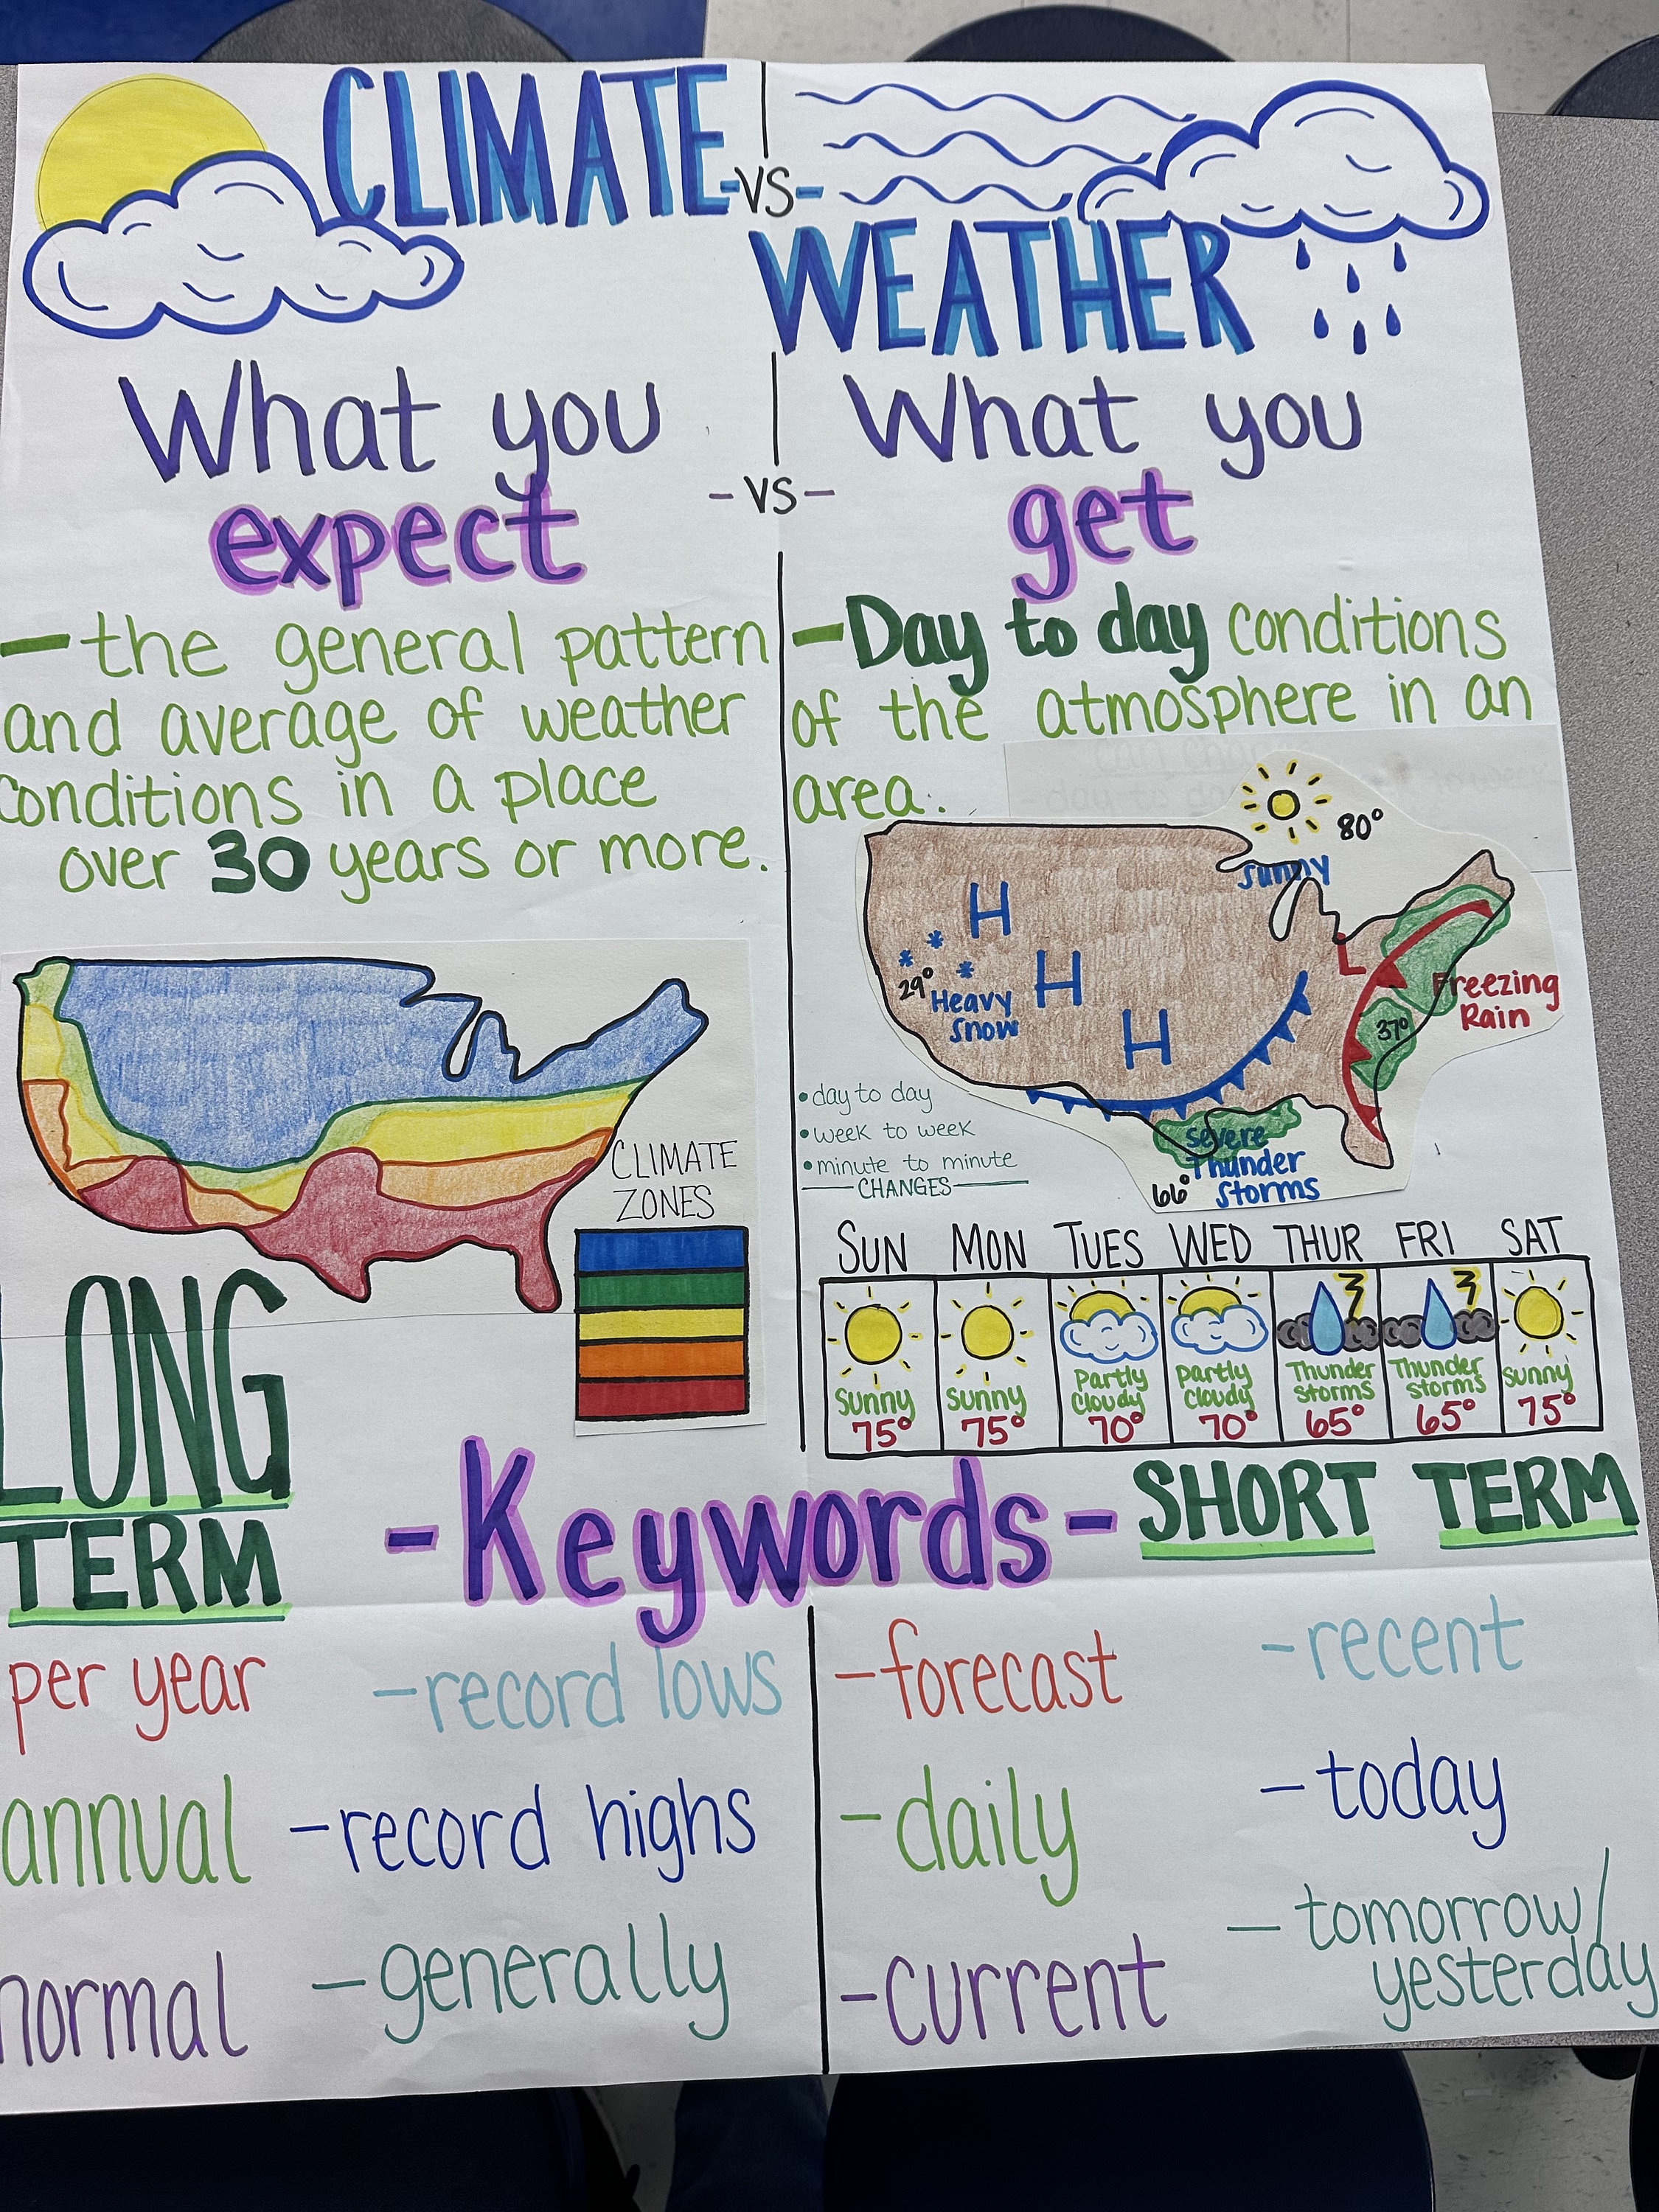 CLIMATE
-VS-
WEATHER
What you
expect
-VS-
What you
get
-the general pattern
and average of weather
conditions in a place
over 30 years or more.
-Day to day conditions
of the atmosphere in an
area.
80°
Sunny
H
H
H
29°
Heavy
Snow
L
Freezing
Rain
37°
Severe
Thunder
Storms
66°
•day to day
•week to week
•minute to minute
CHANGES
CLIMATE
ZONES
SUN MON TUES WED THUR FRI SAT
Sunny
75°
Sunny
75°
Partly
Cloudy
70°
Partly
Cloudy
70°
Thunder
storms
65°
Thunder
storms
65°
Sunny
75°
LONG
TERM
-Keywords-
SHORT TERM
per year
-record lows
annual
-record highs
normal
-generally
-forecast
-recent
-daily
-today
-current
-tomorrow/
yesterday